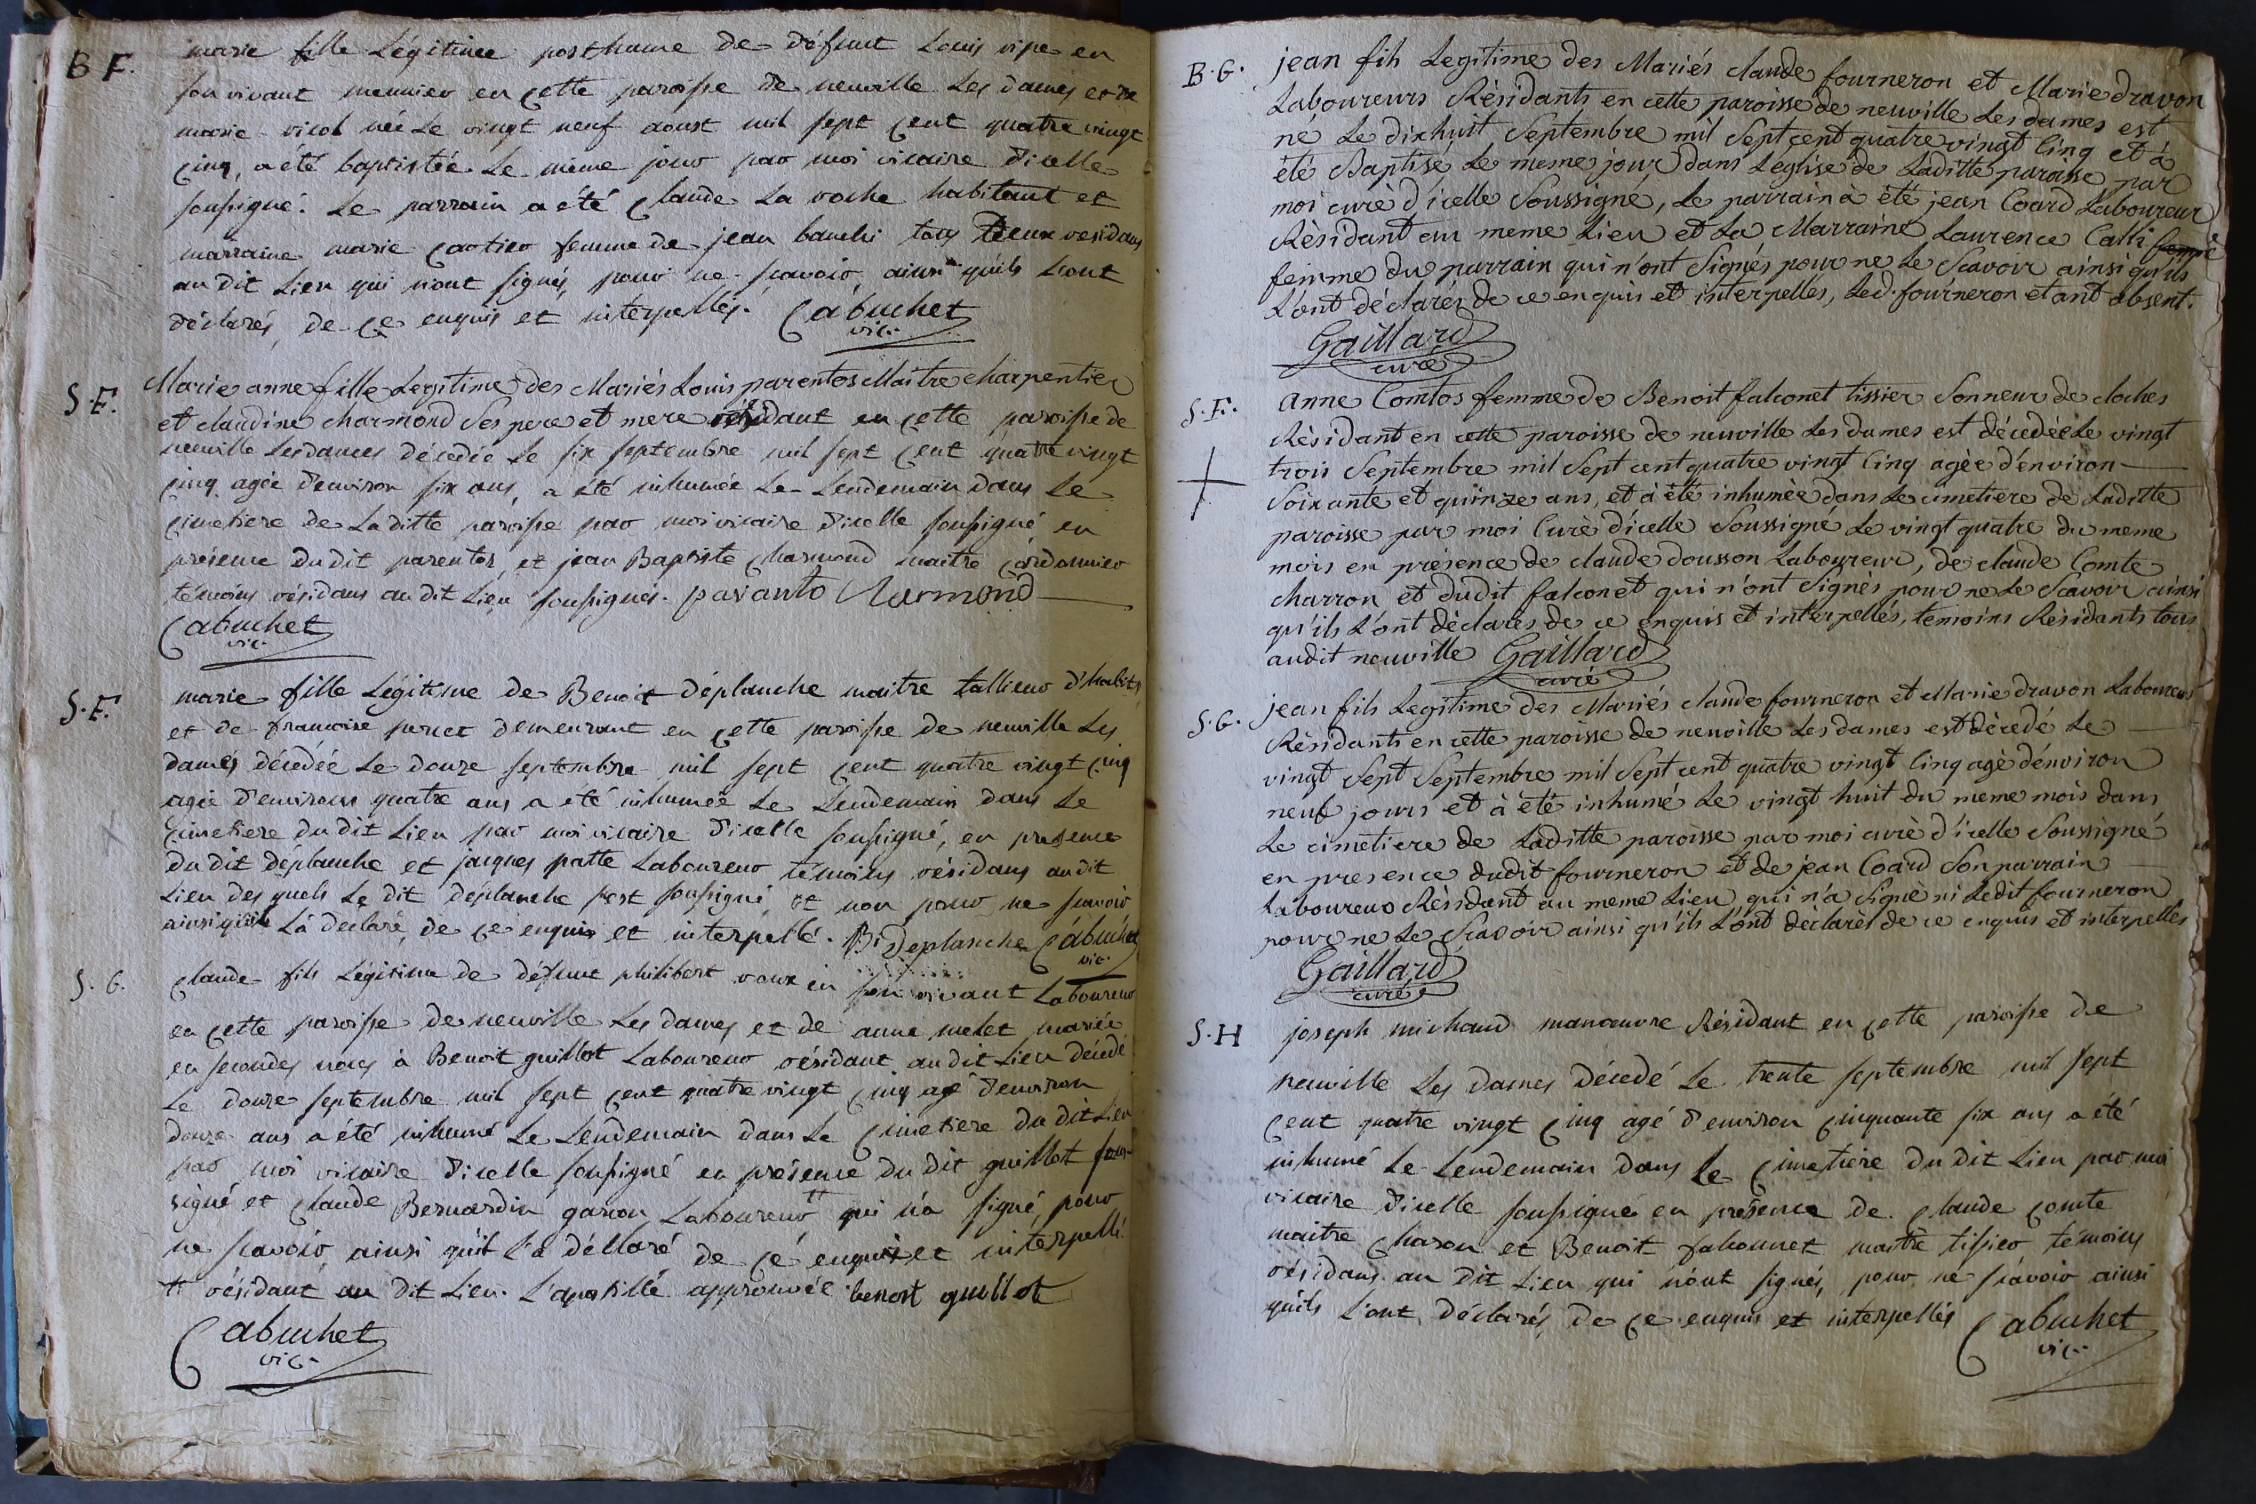 B F.
marie fille Légitime posthume de défunt Louis vipe en
son vivant meunier en cette paroisse de neuville Les dames et de
marie vicol née Le vingt neuf aoust mil sept cent quatre vingt
cinq, a été baptistée Le même jour par moi vicaire d'icelle
soussigné. Le parrain a été claude La roche habitant et
marraine marie cartier femme de jean banchi tous deux residans
au dit Lien qui n'ont signés, pour ne scavoir, ainsi qu'ils L'ont
déclarés, de ce enquis et interpellés. Cabuchet
vic.
S. F.
Marie anne fille Legitime des Mariés Louis parentos Maitre charpentier
et claudine charmond Ses pere et mere résidant en cette paroisse de
neuville Les dames décédée Le six septembre mil sept cent quatre vingt
cinq agée d'environ six ans, a été inhumée Le Lendemain dans Le
cimetiere de La ditte paroisse par moi vicaire d'icelle soussigné en
présence du dit parentos, et jean Baptiste charmond maitre cordonnier
témoins résidans au dit Lieu soussignés. paranto Charmond
Cabuchet
vic.
S. F.
marie fille Légitime de Benoit déplanche maitre tallieur d'habits
et de francoise demeurant en cette paroisse de neuville Les
dames décédée Le douze septembre mil sept cent quatre vingt cinq
agée d'environs quatre ans a été inhumée Le Lendemain dans Le
cimetiere du dit Lieu par moi vicaire d'icelle soussigné, en presence
du dit déplanche et jacques patte Laboureur témoins résidans au dit
Lieu des quels Le dit déplanche s'est soussigné et non pour ne scavoir
ainsi qu'il L'a declaré, de ce enquis et interpellé. B Deplanche Cabuchet
vic.
S. G.
claude fils Légitime de défunt philibert roux en son vivant Laboureur
en cette paroisse de neuville Les dames et de anne melet mariée
en secondes noces à Benoit guillot Laboureur résidant au dit Lieu décédé
Le douze septembre mil sept cent quatre vingt cinq agé d'environ
douze ans a été inhumé Le Lendemain dans Le cimetiere du dit Lieu
par moi vicaire d'icelle soussigné en présence du dit guillot sous-
signé et claude Bernardin garcon Laboureur tt qui n'a signé, pour
ne scavoir, ainsi qu'il L'a déclaré de cé enquis et interpellé.
tt résidant au dit Lieu. L'apostille approuvée benoit guillot
Cabuchet
vic.
B. G.
jean fils Legitime des Mariés claude fourneron et Marie dravon
Laboureurs Résidants en cette paroisse de neuville Les dames est
né Le dixhuit Septembre mil Sept cent quatre vingt Cinq et à
été Baptisé Le meme jour dans L'eglise de Laditte paroisse par
moi curé d'icelle Soussigné, Le parrain à été jean Coard Laboureur
Résidant au meme Lieu et La Marraine Laurence Calli femme
femme du parrain qui n'ont Signés pour ne Le Scavoir ainsi qu'ils
L'ont déclarés de ce enquis et interpelles, Led. fourneron etant absent.
Gaillard
curé
S. F.
anne Comtos femme de Benoit falconet tissier Sonneur de cloches
Résidant en cette paroisse de neuville Les dames est décedée Le vingt
trois Septembre mil Sept cent quatre vingt Cinq agèe d'environ
Soixante et quinze ans, et à été inhumèe dans Le cimetiere de Laditte
paroisse par moi Curé d'icelle Soussigné Le vingt quatre du meme
mois en présence de claude dousson Laboureur, de claude Comte
charron et dudit falconet qui n'ont Signès pour ne Le Scavoir ainsi
qu'ils L'ont déclarès de ce enquis et interpellés, temoins Résidants tous
audit neuville Gaillard
curé
S. G.
jean fils Legitime des Mariés claude fourneron et Marie dravon Laboureurs
Résidants en cette paroisse de neuville Les dames est dècedé Le
vingt Sept Septembre mil Sept cent quatre vingt Cinq agè d'environ
neuf jours et à été inhumé Le vingt huit du meme mois dans
Le cimetiere de Laditte paroisse par moi curè d'icelle Soussigné
en presence dudit fourneron et de jean Coard Son parrain
Laboureur Résidant au meme Lieu qui n'a Signè ni Ledit fourneron
pour ne Le Scavoir ainsi qu'ils L'ont déclarès de ce enquis et interpellés
Gaillard
curé
S. H
joseph michaud manœuvre Résidant en cette paroisse de
neuville Les dames décédé Le trente septembre mil sept
cent quatre vingt cinq agé d'environ cinquante six ans a été
inhumé Le Lendemain dans Le cimetiére du dit Lieu par moi
vicaire d'icelle soussigné en présence de claude comte
maitre charon et Benoit falconnet maitre tissier témoins
résidans au dit Lieu qui n'ont signés, pour ne scavoir ainsi
qu'ils L'ont déclarés, de ce enquis et interpellés Cabuchet
vic.